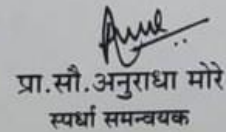 प्रा.सौ.अनुराधा मोरे
स्पर्धा समन्वयक